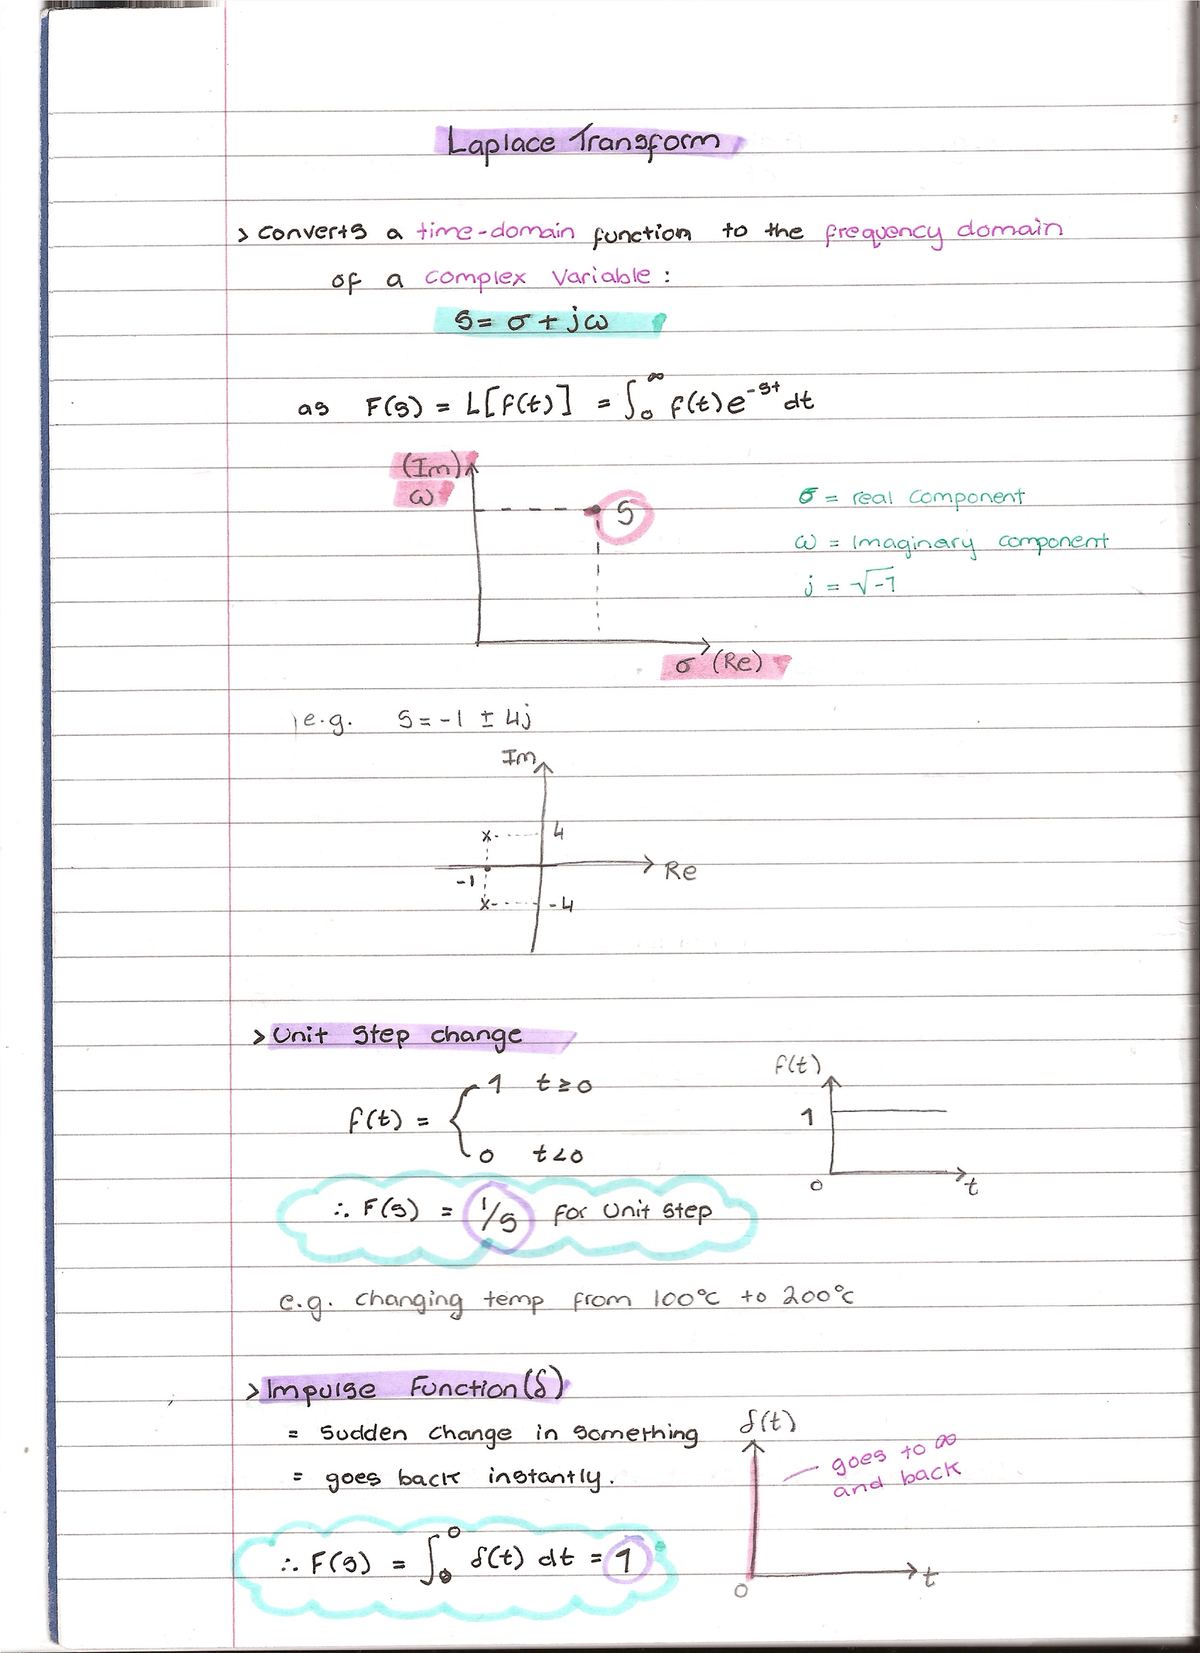 Laplace Transform
> converts a time-domain function to the frequency domain
of a complex variable :
s = σ + jω
as F(s) = L[f(t)] = ∫₀^∞ f(t)e^-st dt
(Im)
ω
s
σ (Re)
σ = real component
ω = Imaginary component
j = √-1
e.g. s = -1 ± 4j
Im
4
Re
-1
-4
> Unit step change
f(t) = { 1 t ≥ 0
0 t < 0
f(t)
1
0
t
∴ F(s) = 1/s for unit step
e.g. changing temp from 100°c to 200°c
> Impulse Function (δ)
= sudden change in something
= goes back instantly.
δ(t)
goes to ∞
and back
0
t
∴ F(s) = ∫₀^0 δ(t) dt = 1